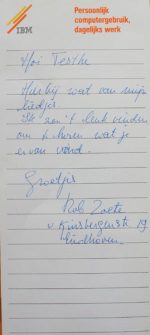 IBM
Persoonlijk
computergebruik,
dagelijks werk
Hoi
Hierbij wat van mijn
liedjes.
Ik zou 't leuk vinden
om te horen wat je
ervan vond.
Groetjes
Rob
v. Kinsbergenstr 19
Eindhoven